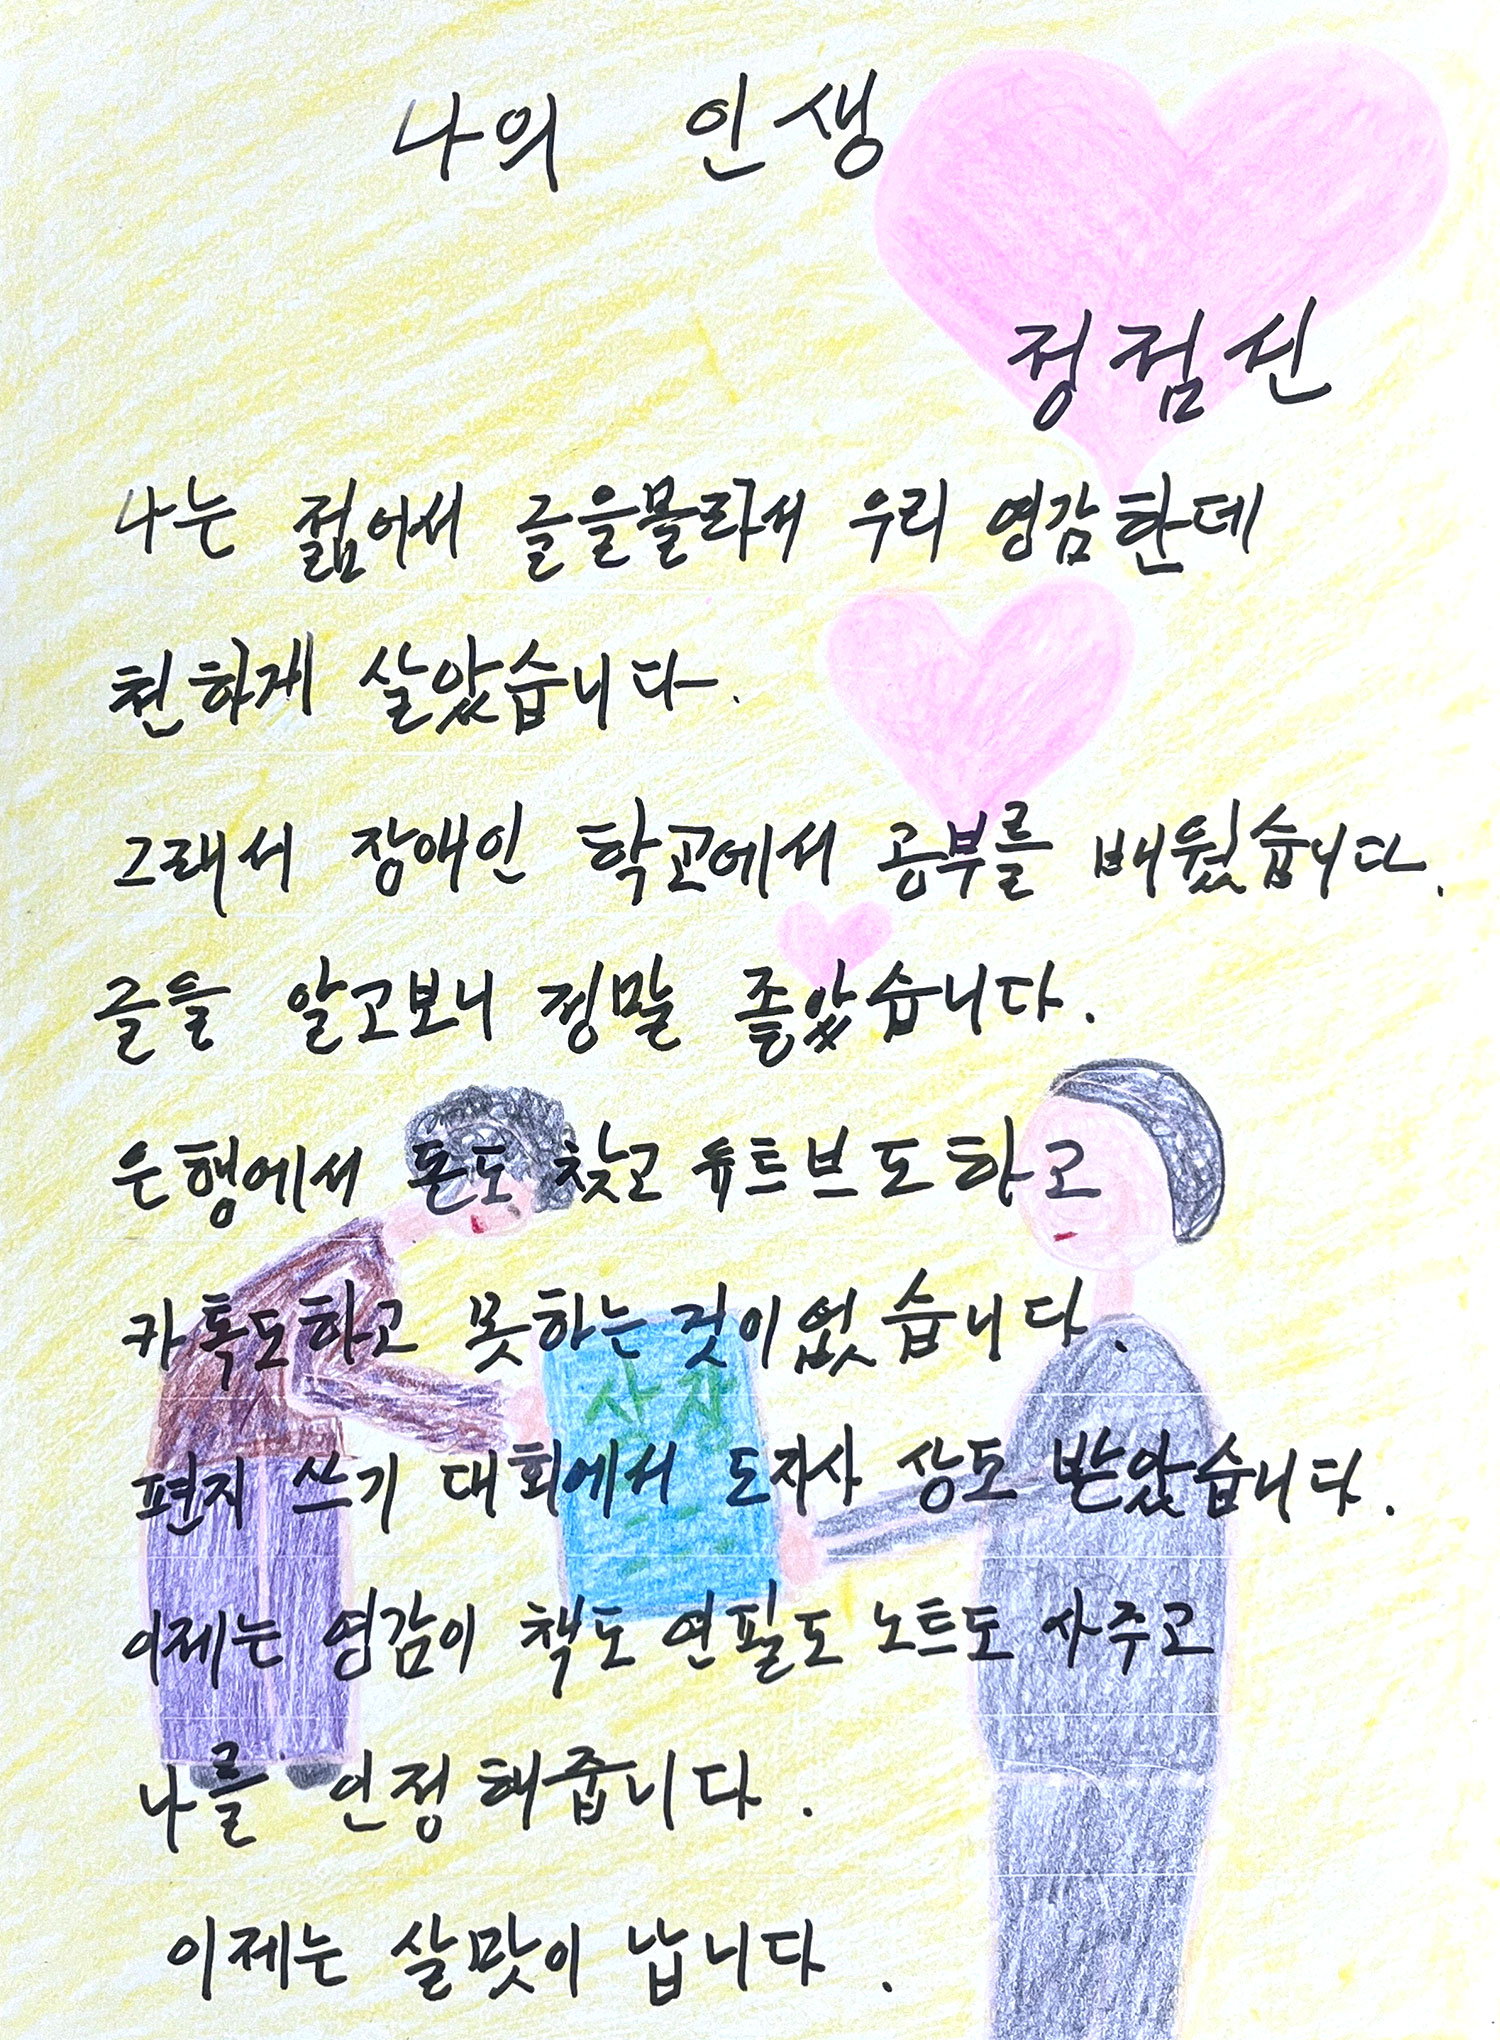 나의 인생
정점신
나는 젊어서 글을몰라서 우리 영감한데
천하게 살았습니다.
그래서 장애인 학교에서 공부를 배웠습니다.
글을 알고보니 정말 좋았습니다.
은행에서 돈도 찾고 유트브도하고
카톡도하고 못하는것이없습니다.
상장
편지 쓰기 대회에서 도지사 상도 받았습니다.
이제는 영감이 책도 연필도 노트도 사주고
나를 인정해줍니다.
이제는 살맛이 납니다.